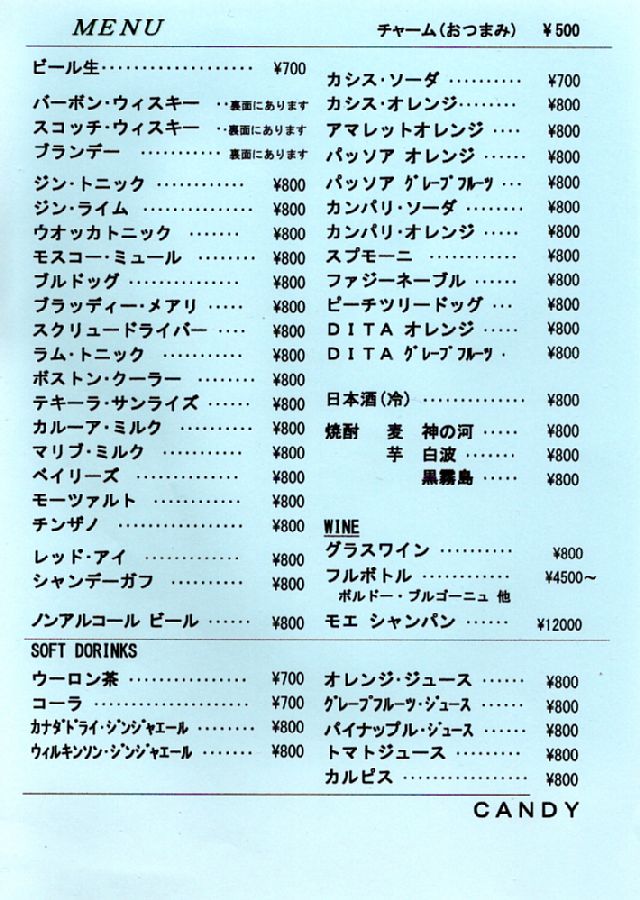 MENU
チャーム(おつまみ) ¥500
ビール生・・・・・・・・・・・・・・・・・・・ ¥700
バーボン・ウィスキー ・・裏面にあります
スコッチ・ウィスキー ・・裏面にあります
ブランデー ・・・・・・・・・・・ 裏面にあります
ジン・トニック ・・・・・・・・・・・・・ ¥800
ジン・ライム ・・・・・・・・・・・・・・ ¥800
ウオッカトニック ・・・・・・・ ¥800
モスコー・ミュール ・・・・・・・・ ¥800
ブルドッグ ・・・・・・・・・・・・・・ ¥800
ブラッディー・メアリ ・・・・・ ¥800
スクリュードライバー ・・・・ ¥800
ラム・トニック ・・・・・・・・・・・・ ¥800
ボストン・クーラー ・・・・・・・・ ¥800
テキーラ・サンライズ ・・・・・・ ¥800
カルーア・ミルク ・・・・・・・・・・ ¥800
マリブ・ミルク ・・・・・・・・・・・・ ¥800
ベイリーズ ・・・・・・・・・・・・・ ¥800
モーツァルト ・・・・・・・・・・・ ¥800
チンザノ ・・・・・・・・・・・・・・・・ ¥800
レッド・アイ ・・・・・・・・・・・・ ¥800
シャンデーガフ ・・・・・・・・・ ¥800
ノンアルコール ビール ・・・・・・ ¥800
カシス・ソーダ ・・・・・・・・・・ ¥700
カシス・オレンジ・・・・・・・・ ¥800
アマレットオレンジ ・・・・ ¥800
パッソア オレンジ ・・・・・・ ¥800
パッソア グレープフルーツ ・・・ ¥800
カンパリ・ソーダ ・・・・・・・・ ¥800
カンパリ・オレンジ ・・・・・ ¥800
スプモーニ ・・・・・・・・・・・・ ¥800
ファジーネーブル ・・・・・・ ¥800
ピーチツリードッグ ・・・ ¥800
DITA オレンジ ・・・・・ ¥800
DITA グレープフルーツ ・ ¥800
日本酒(冷) ・・・・・・・・・・・・・ ¥800
焼酎 麦 神の河 ・・・・・ ¥800
芋 白波 ・・・・・・・ ¥800
黒霧島 ・・・・・ ¥800
WINE
グラスワイン ・・・・・・・・・・ ¥800
フルボトル ・・・・・・・・・・・・ ¥4500～
ボルドー・ブルゴーニュ 他
モエ シャンパン ・・・・・・ ¥12000
SOFT DORINKS
ウーロン茶 ・・・・・・・・・・・・・・・ ¥700
コーラ ・・・・・・・・・・・・・・・・・・・ ¥700
カナダドライ・ジンジャエール ・・・・・・・・ ¥800
ウィルキンソン・ジンジャエール ・・・・・・・ ¥800
オレンジ・ジュース ・・・・・・ ¥800
グレープフルーツ・ジュース ・・・・・・ ¥800
パイナップル・ジュース ・・・・・・ ¥800
トマトジュース ・・・・・・・・・ ¥800
カルピス ・・・・・・・・・・・・・・・・ ¥800
CANDY